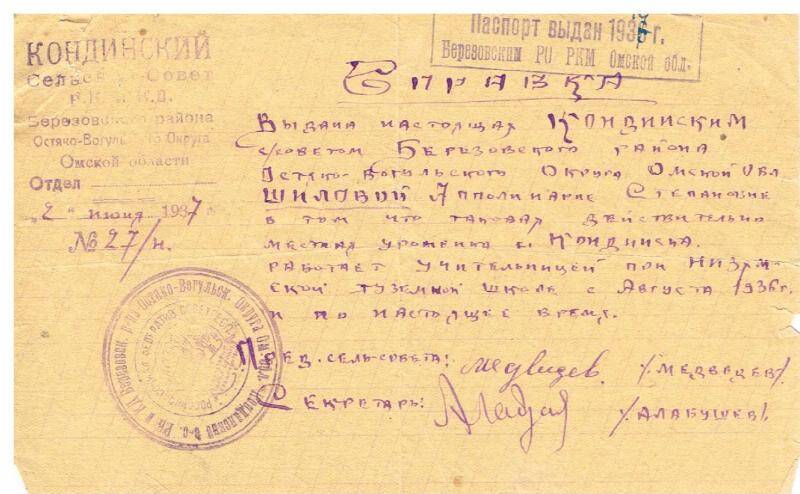 КОНДИНСКИЙ
Сельский Совет
Р.К. и К.Д.
Березовского района
Остяко-Вогульского Округа
Омской области
Отдел
„2" июня 1937 г.
№ 27/н.
Паспорт выдан 1937 г.
Березовским РО РКМ Омской обл.
Справка
Выдана настоящая Кондинским
с/советом Березовского района
Остяко-Вогульского Округа Омской Обл
Шиловой Апполинарие Степановне
в том что таковая действительно
местная уроженка с. Кондинска.
работает учительницей при Низям-
ской туземной школе с Августа 1936 г.
и по настоящее время.
Пред. сель-совета: Медведев /Медведев/
Секретарь: /Алабушев/